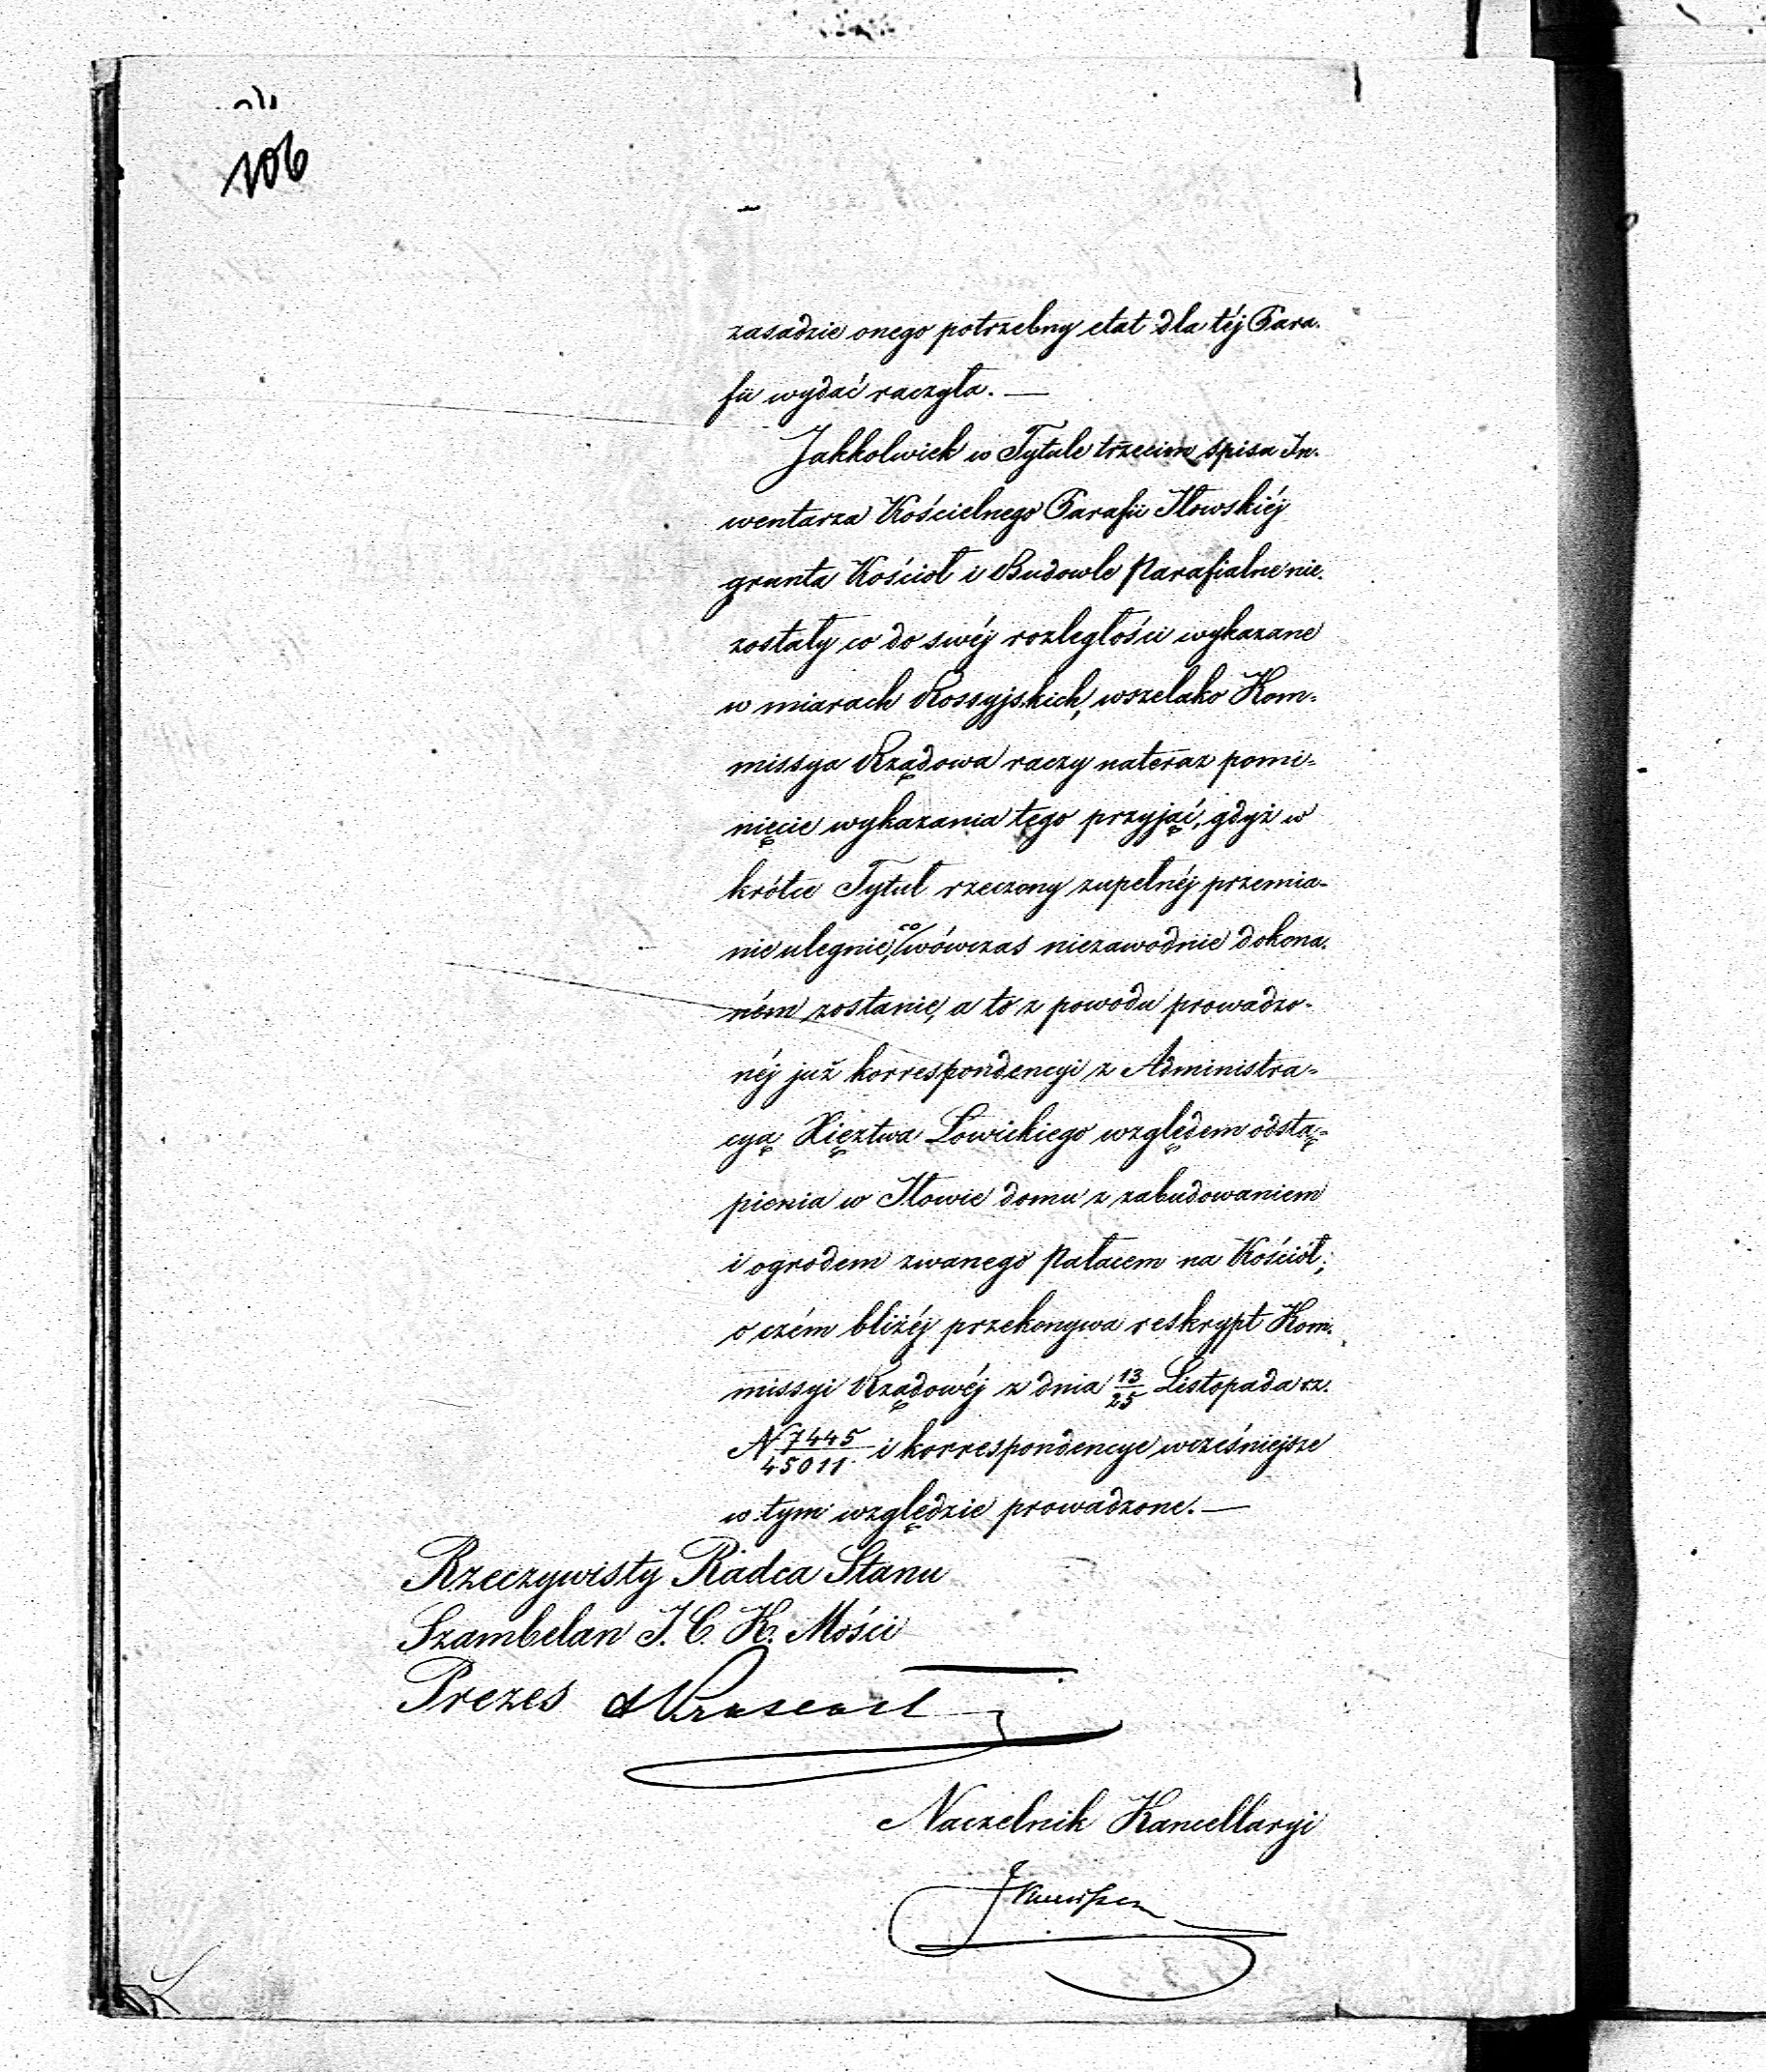 106
zasadzie onego potrzebny etat dla téj Para-
fii wydać raczyła. —
Jakkolwiek w Tytule trzecim spisu In-
wentarza Kościelnego Parafii Iłowskiéj
grunta Kościoł i Budowle Parafialne nie-
zostały co do swéj rozległości wykazane
w miarach Rossyjskich, wszelako Kom-
missya Rządowa raczy nateraz pomi-
nięcie wykazania tego przyjąć, gdyż w
krótce Tytuł rzeczony zupełnéj przemia-
nie ulegnie, co wówczas niezawodnie dokona-
ném zostanie, a to z powodu prowadzo-
néj już korrespondencyi z Administra-
cyą Xięztwa Łowickiego względem odstą-
pienia w Iłowie domu z zabudowaniem
i ogrodem zwanego Pałacem na Kościół;
o czém bliżéj przekonywa reskrypt Kom-
missyi Rządowéj z dnia 13/25 Listopada rz.
N 7445/45011 i korrespondencye wcześniejsze
w tym względzie prowadzone. —
Rzeczywisty Radca Stanu
Szambelan J. C. K. Mości
Prezes
Naczelnik Kancellaryi